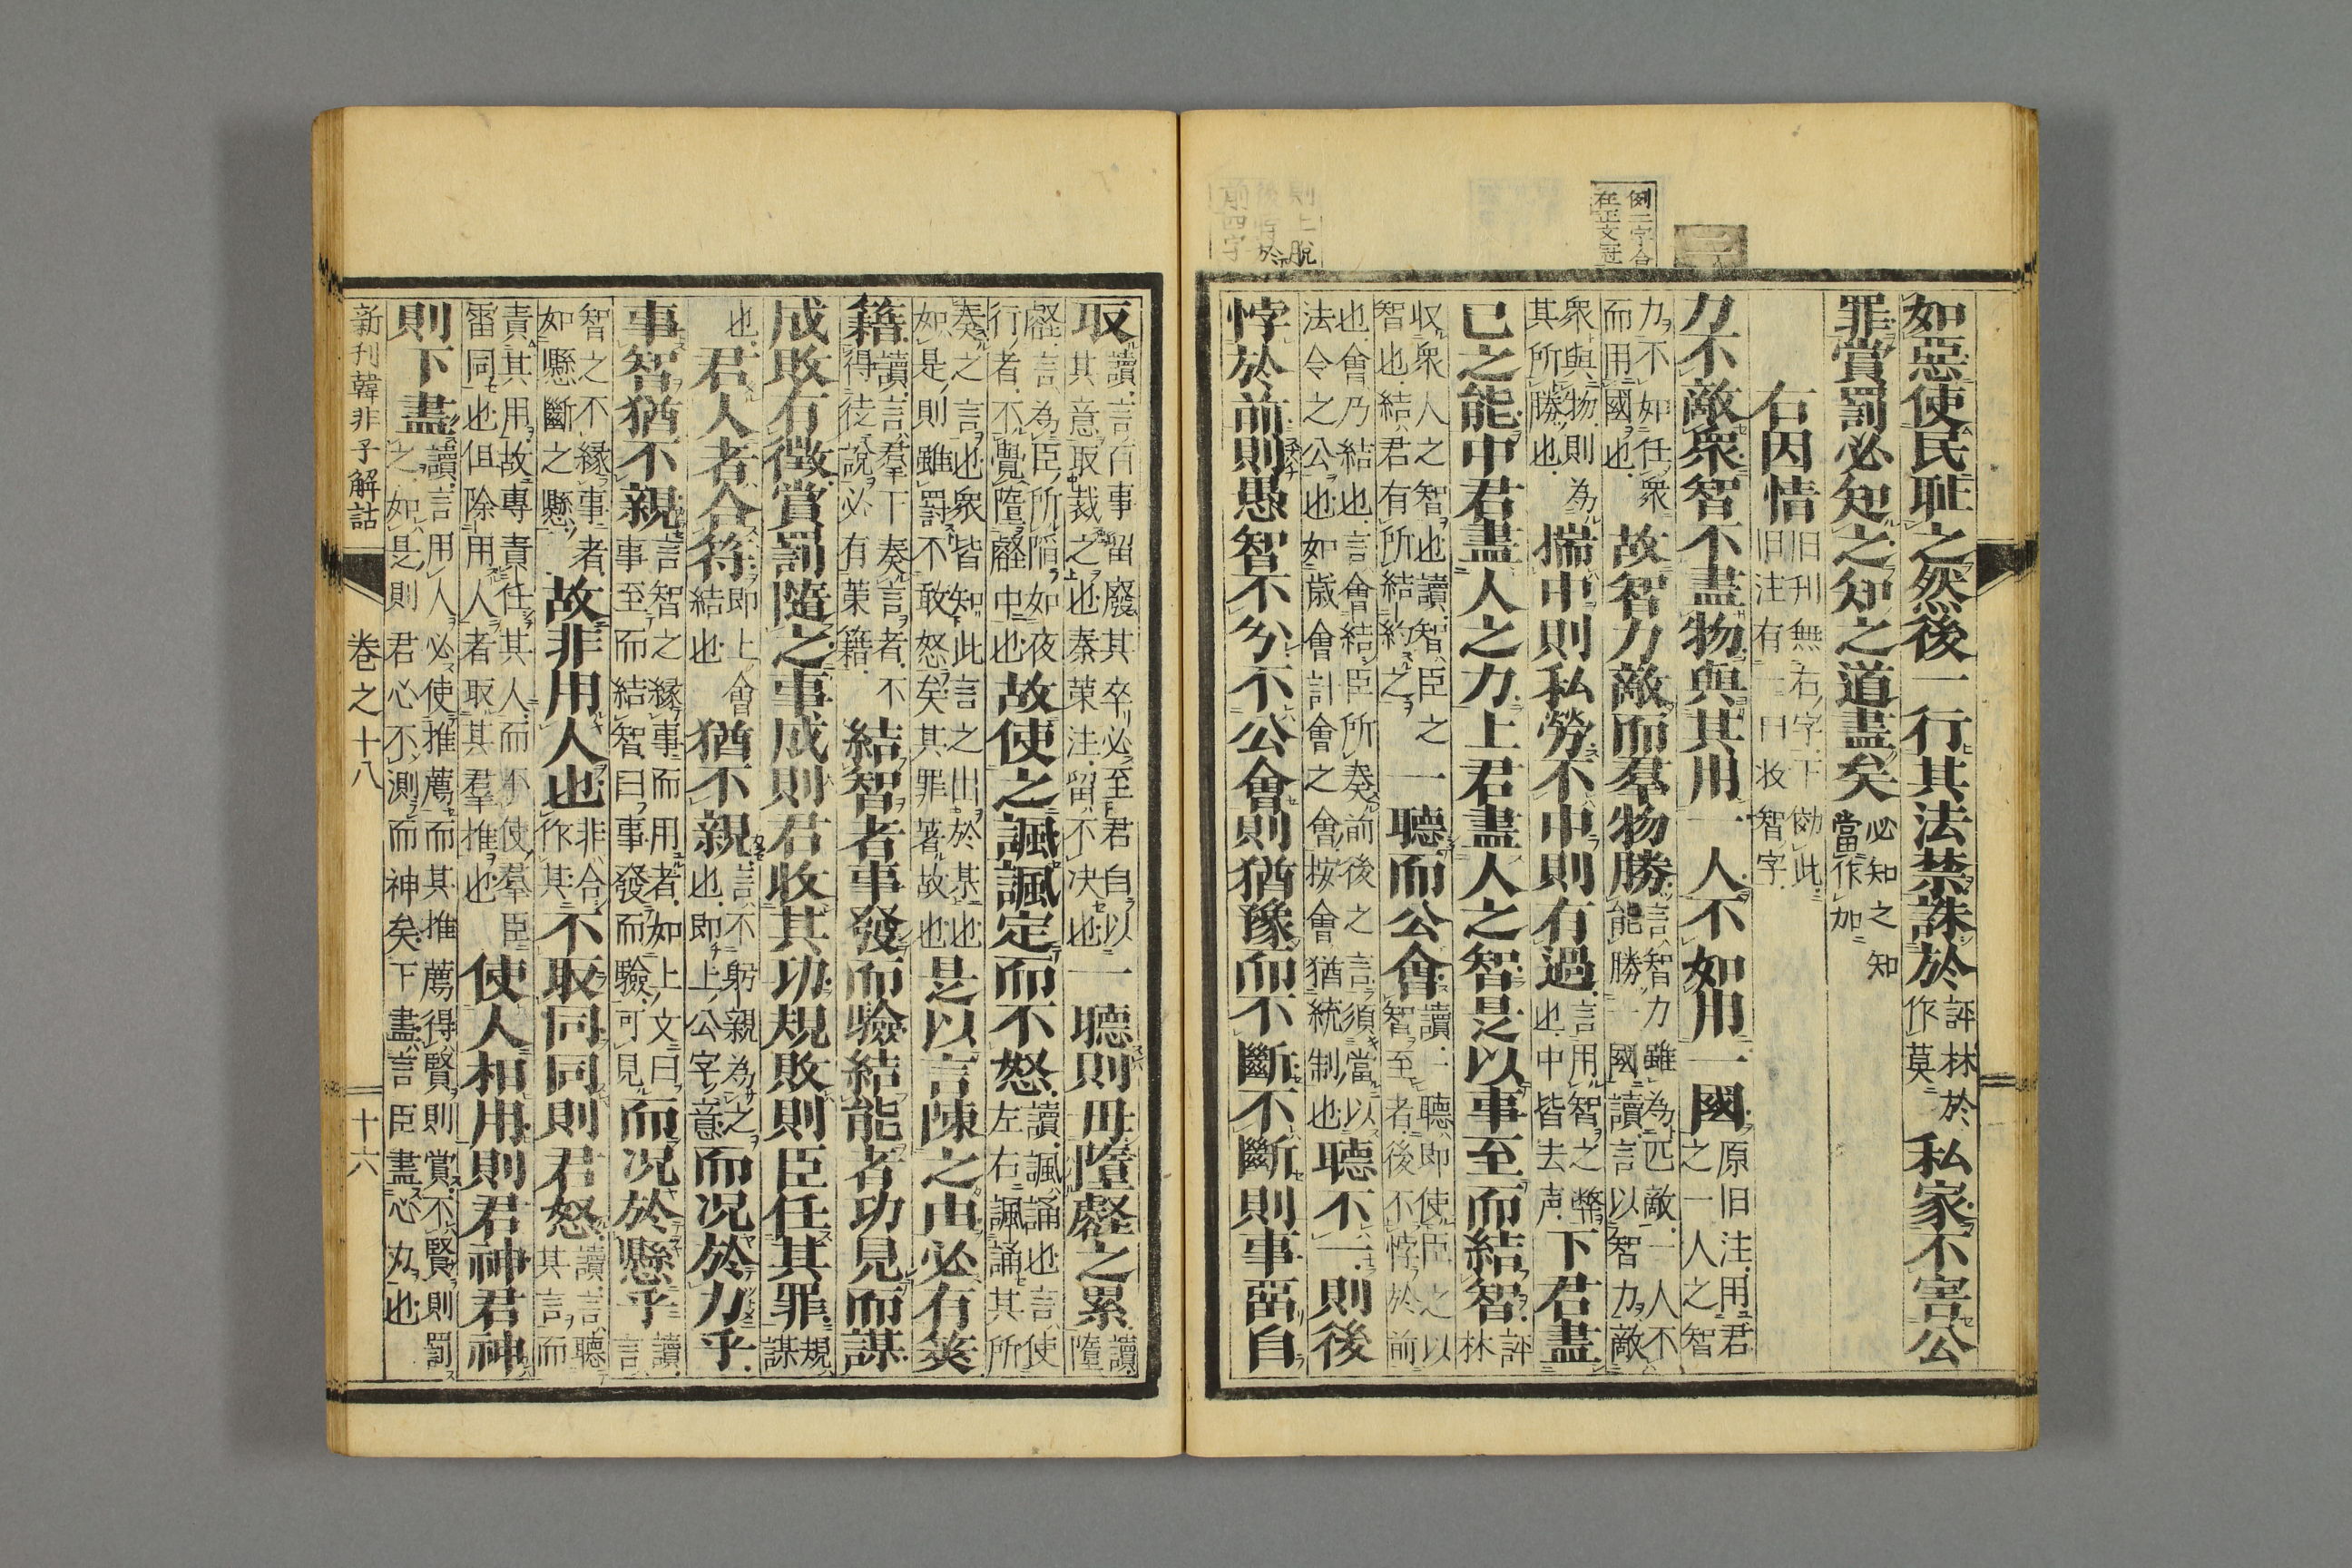 如惡使民耻之然後一行其法禁誅於評林於作莫私家不害公
罪賞罰必知之知之道盡矣必知之知當作加
右因情旧刊無右字下倣此旧注有一曰收智字
力不敵衆智不盡物與其用一人不如用一國原旧注用君之一人之智
力不如任衆而用國也故智力敵而羣物勝言智力雖為匹敵一人不能勝一國讀言以智力敵
衆與物則為其所勝也揣中則私勞不中則有過言用智之弊也中皆去声下君盡
已之能中君盡人之力上君盡人之智是以事至而結智評林
收衆人之智也讀智臣之智也結君有所結約之一聽而公會讀一聽即使臣之以智至者後不悖於前
也會乃結也言會結臣所奏前後之言須當以法令之公也如歳會計會之會按會猶統制也聽不一則後
悖於前則愚智不分不公會則猶豫而不斷不斷則事畱自
例二字合在正文冠
則上脫後悖於前四字
取讀言百事留廢其卒必至君自以其意取裁之也秦菓注留不决也一聽則毋墮壑之累讀墮
壑言為臣所陷如夜行者不覺墮壑中也故使之諷諷定而不怒讀諷誦也言使左右諷誦其所
奏之言也衆皆知此言之出於某也如是則雖罰不敢怒矣其罪著故也是以言陳之由必有筴
籍讀言羣下奏言者不得徒說必有菓籍結智者事發而驗結能者功見而謀
成敗有徵賞罰隨之事成則君收其功規敗則臣任其罪規謀
也君人者合符即上會結也猶不親言不躬親為之也即上公字意而况於力乎
事智猶不親言智之縁事而用者如上文曰事至而結智曰事發而驗可見而况於懸乎讀言
智之不縁事者如懸斷之懸故非用人也非合作其不取同同則君怒讀言聽其言而
責其用故專責任其人而不使羣臣雷同也但除用人者取其羣推也使人相用則君神君神
則下盡讀言用人必使推薦而其推薦得賢則賞不賢則罰之如是則君心不測而神矣下盡言臣盡心力也
新刊韓非子解詁
卷之十八
十六